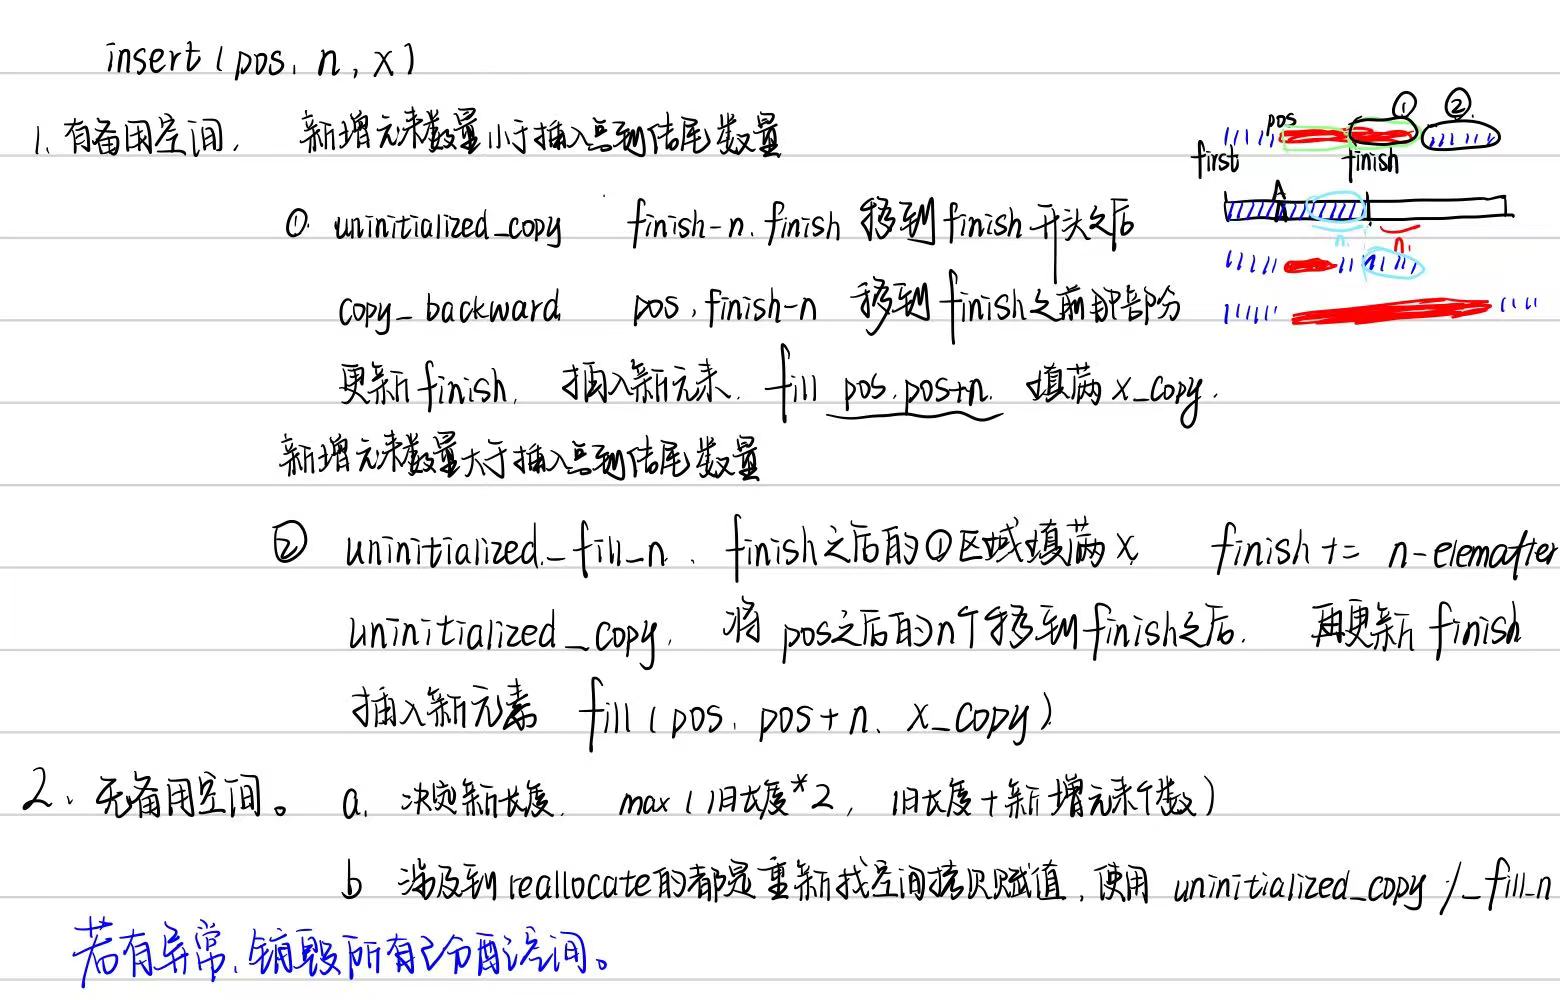 insert(pos, n, x)
1. 有备用空间, 新增元素数量小于插入点到结尾数量
① uninitialized_copy finish-n, finish 移到 finish 开头之后
copy_backward pos, finish-n 移到 finish 之前那部分
更新 finish, 插入新元素. fill pos, pos+n. 填满 x_copy.
新增元素数量大于插入点到结尾数量
② uninitialized_fill_n, finish之后的①区域填满x finish += n-elemafter
uninitialized_copy, 将 pos之后的n个移到finish之后. 再更新 finish
插入新元素 fill(pos, pos+n, x_copy)
2、无备用空间。 a. 决定新长度, max(旧长度*2, 旧长度+新增元素个数)
b 涉及到reallocate的都是重新找空间拷贝赋值, 使用 uninitialized_copy /_fill_n
若有异常, 销毁所有已分配空间。
① ②
pos
first finish
A
n n